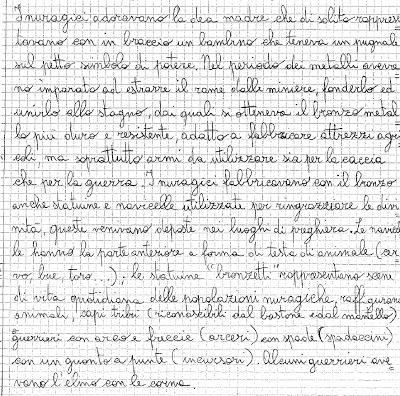 I nuragici adoravano la dea madre che di solito rappresen
tavano con in braccio un bambino che teneva un pugnale
sul petto simbolo di potere. Nel periodo dei metalli aveva=
no imparato ad estrarre il rame dalle miniere, fonderlo ed
unirlo allo stagno, dai quali si otteneva il bronzo metal=
lo più duro e resistente, adatto a fabbricare attrezzi agri=
coli, ma soprattutto armi da utilizzare sia per la caccia
che per la guerra. I nuragici fabbricavano con il bronzo
anche statuine e navicelle utilizzate per ringraziare le divi
nità, queste venivano deposte nei luoghi di preghiera. Le navicel
le hanno la parte anteriore a forma di testa di animale (cer
vo, bue, toro...); le statuine "bronzetti" rappresentano scene
di vita quotidiana delle popolazioni nuragiche, raffigurano
animali, capi tribù (riconoscibili dal bastone e dal mantello)
guerrieri con arco e freccie (arceri) con spade (spadaccini)
con un guanto a punte (incursori). Alcuni guerrieri ave=
vano l'elmo con le corna.